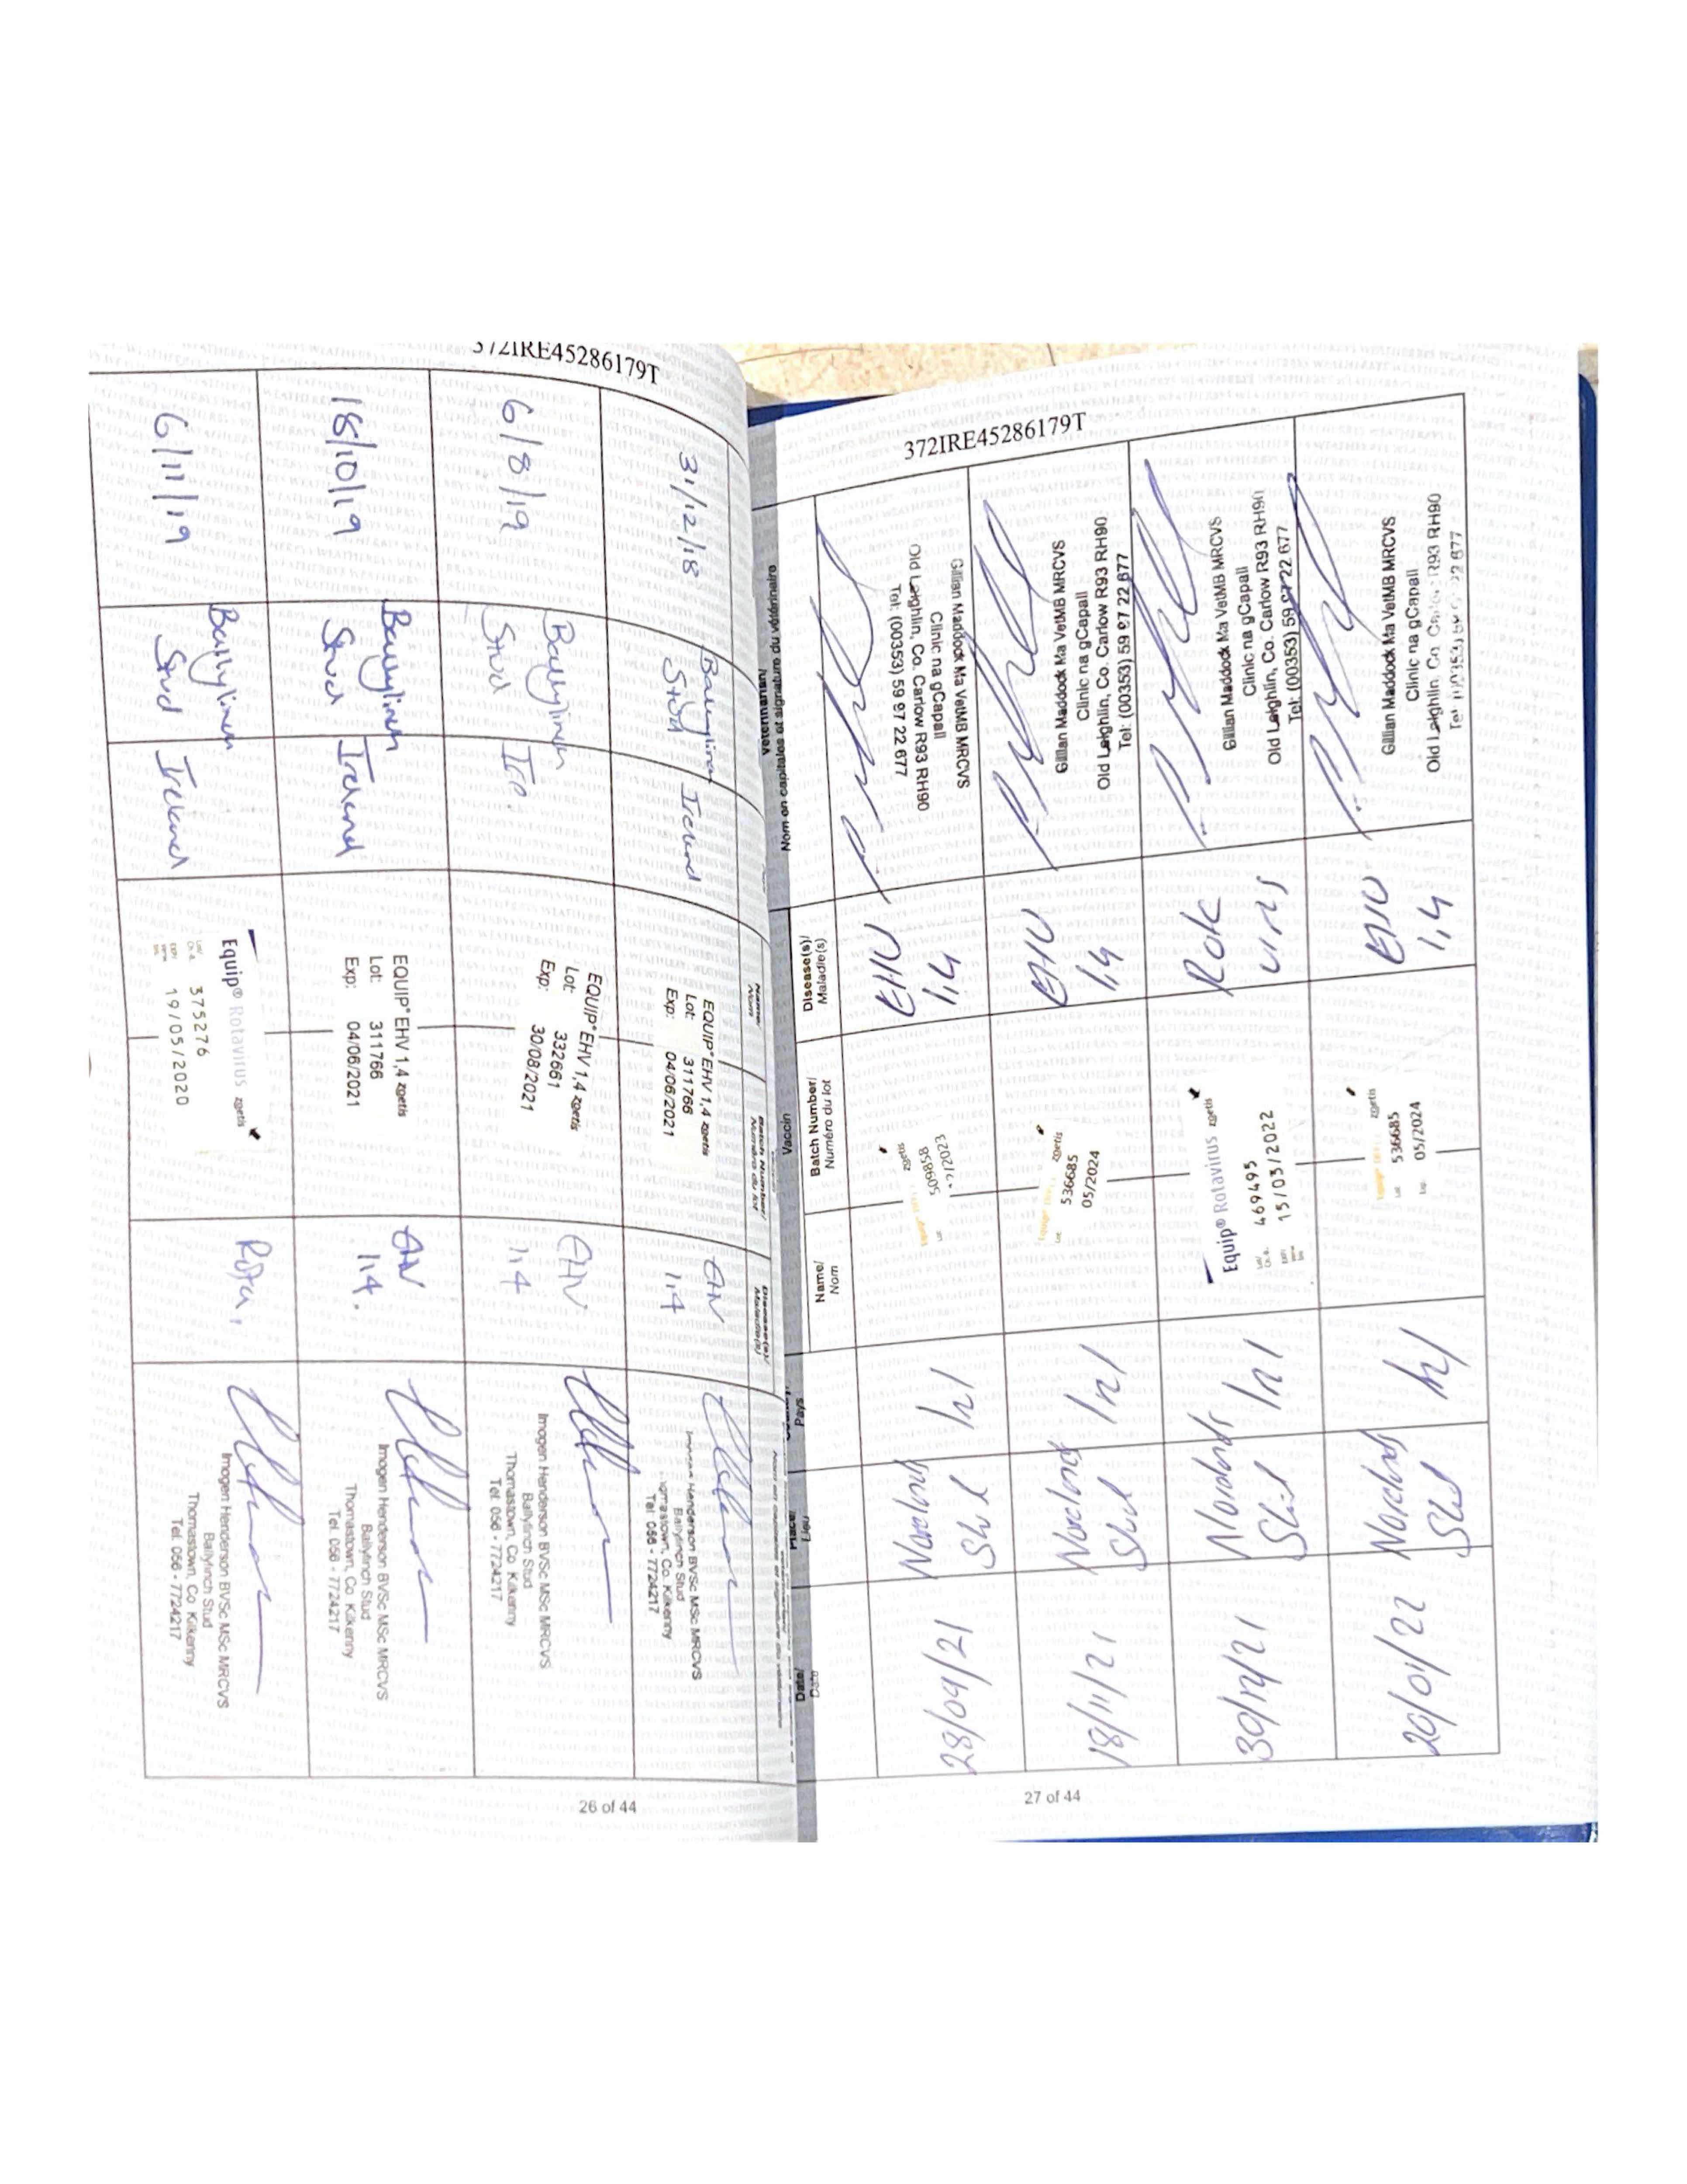 372IRE45286179T
Name/
Nom
Batch Number/
Numéro du lot
Disease(s)/
Maladie(s)
31/12/18
Stud
Ireland
EQUIP® EHV 1,4 zoetis
Lot: 311766
Exp: 04/06/2021
EHV
1,4
Henderson BVSc MSc MRCVS
Ballylinch Stud
Thomastown, Co. Kilkenny
Tel: 056 - 7724217
6/8/19
Stud
Ire.
EQUIP® EHV 1,4 zoetis
Lot: 332661
Exp: 30/08/2021
EHV
1,4
Imogen Henderson BVSc MSc MRCVS
Ballylinch Stud
Thomastown, Co Kilkenny
Tel: 056 - 7724217
18/10/19
Stud
Ireland
EQUIP® EHV 1,4 zoetis
Lot: 311766
Exp: 04/06/2021
EHV
1,4.
Imogen Henderson BVSc MSc MRCVS
Ballylinch Stud
Thomastown, Co Kilkenny
Tel: 056 - 7724217
6/11/19
Stud
Ireland
Equip® Rotavirus zoetis
375276
19/05/2020
Rota.
Imogen Henderson BVSc MSc MRCVS
Ballylinch Stud
Thomastown, Co Kilkenny
Tel: 056 - 7724217
26 of 44
372IRE45286179T
Date/
Date
Place/
Lieu
Pays
Vaccin
Name/
Nom
Batch Number/
Numéro du lot
Disease(s)/
Maladie(s)
Veterinarian/
Nom en capitales et signature du vétérinaire
28/09/21
Norelands
Stud
Irl
zoetis
509858
EHV
1,4
Gillian Maddock Ma VetMB MRCVS
Clinic na gCapall
Old Leighlin, Co. Carlow R93 RH90
Tel: (00353) 59 97 22 677
18/11/21
Norelands
Stud
Irl
zoetis
536685
05/2024
EHV
1,4
Gillian Maddock Ma VetMB MRCVS
Clinic na gCapall
Old Leighlin, Co. Carlow R93 RH90
Tel: (00353) 59 97 22 677
30/12/21
Norelands
Stud
Irl
Equip® Rotavirus zoetis
469495
15/03/2022
Rota
virus
Gillian Maddock Ma VetMB MRCVS
Clinic na gCapall
Old Leighlin, Co. Carlow R93 RH90
Tel: (00353) 59 97 22 677
20/01/22
Norelands
Stud
Irl
zoetis
536685
05/2024
EHV
1,4
Gillian Maddock Ma VetMB MRCVS
Clinic na gCapall
Old Leighlin, Co. Carlow R93 RH90
27 of 44